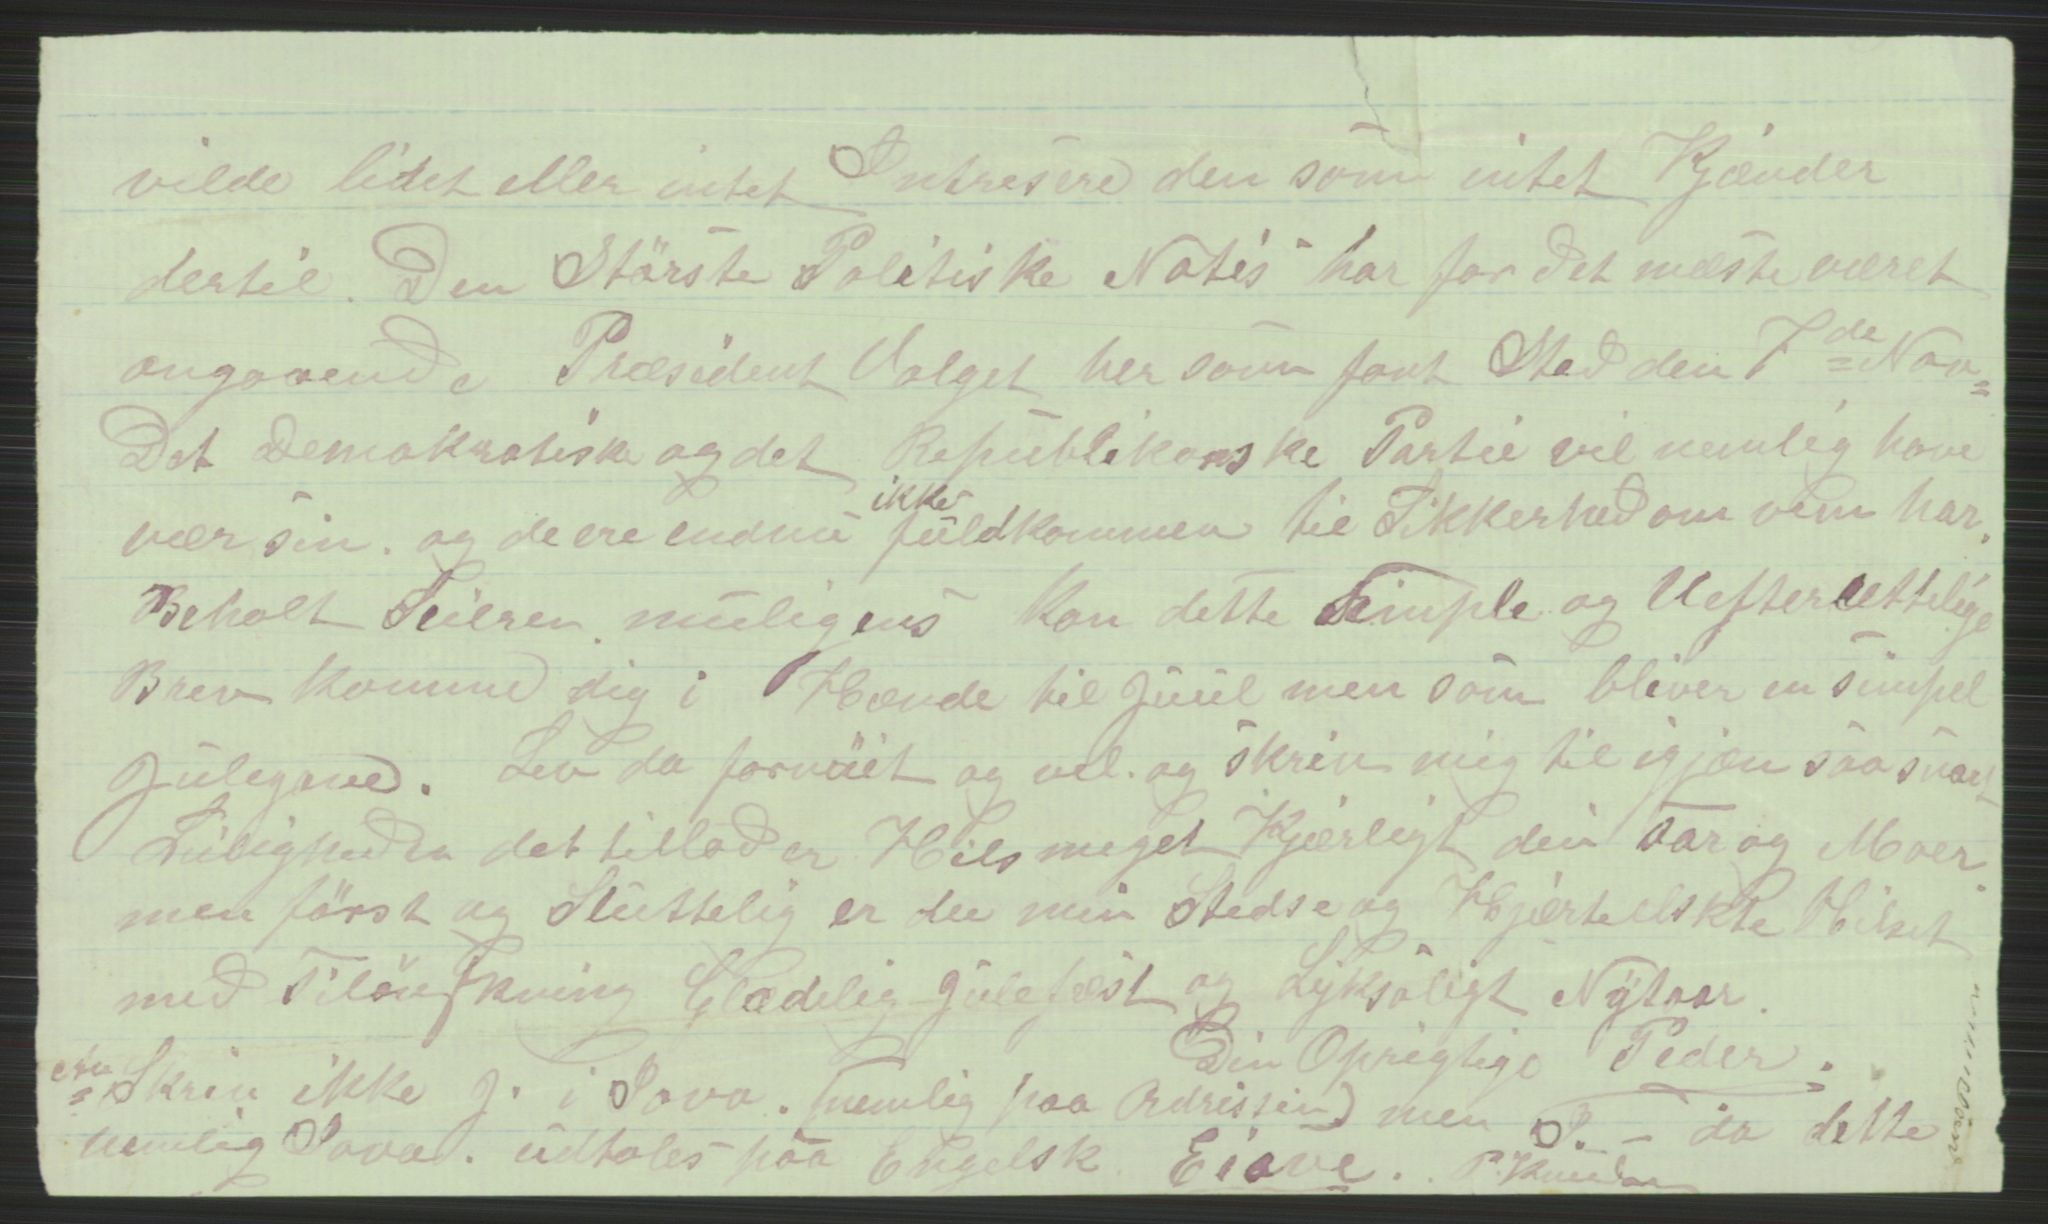 vilde lidet eller intet Intresere den som intet Kjænder
dertil. Den Störste Politiske Notis har for det mæste været
angaaende Præsident Valget her som fant Sted den 7de Nov=
Det Demokratiske og det Republikanske Partie vil nemlig have
vær sin. og de ere endnu ikke fuldkommen til Sikkerhed om vem har.
Beholt Seieren. muligens kan dette Simple og Uefterættelige
Brev komme dig i Hænde til Juul men som bliver en simpel
Julegave. Lev da fornöiet og vel. og skriv mig til igjæn saa snart
Leiligheden det tillader. Hils meget Kjærligt din Far og Moer.
men först og Sluttelig er du min Stedse og Hjerteelskte Hilset
med Tilönskning Glædelig Julefæst og Lyksaligt Nytaar.
Din Oprigtige Peder.
Skriv ikke J. i Iova. (nemlig paa Adrissen) men I. – da dette
nemlig Iova. udtales paa Engelsk Eiove. P. Knudsen